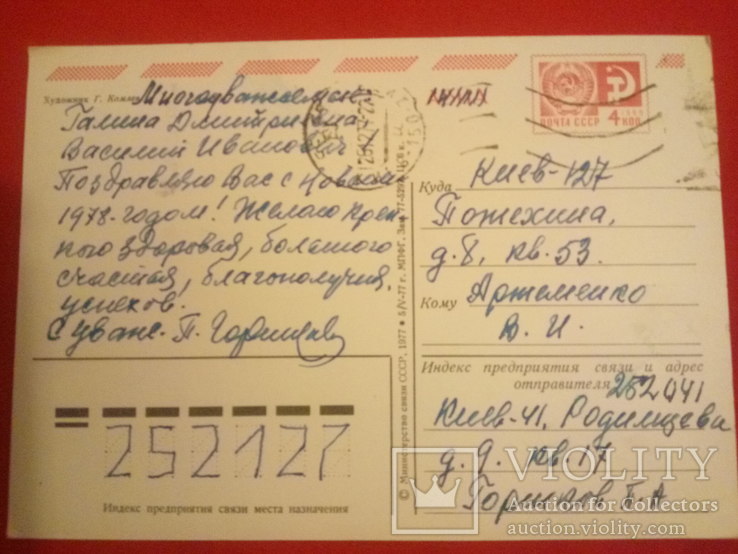 Художник Г. Комлев
Многоуважаемые
Галина Дмитриевна
Василий Иванович
Поздравляю Вас с новым
1978-годом! Желаю креп-
кого здоровая, большого
счастья, благополучия,
успехов.
С уваж. П. Горшков
ПОЧТА СССР
4 КОП
Куда
Киев-127
Потехина,
д. 8, кв. 53.
Кому
Артеменко
В. И.
Индекс предприятия связи и адрес
отправителя
252041
Киев-41, Родимцева
д. 9. кв 17
Горшков П. А
252127
Индекс предприятия связи места назначения
© Министерство связи СССР, 1977 • 5/V-77 г. МПФГ. Зак. 77-529
VIOLITY
Auction for Collectors
auction.violity.com